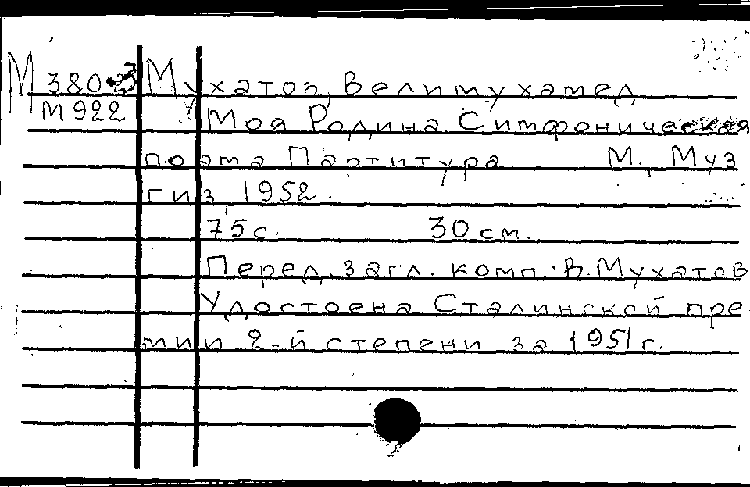 М 380-3 Мухатов, Велимухамед
М922 Моя Родина. Симфоническая
поэма Партитура М., Муз
гиз, 1952.
75 с. 30 см.
Перед загл. комп. В. Мухатов
Удостоена Сталинской пре
мии 2-й степени за 1951 г.